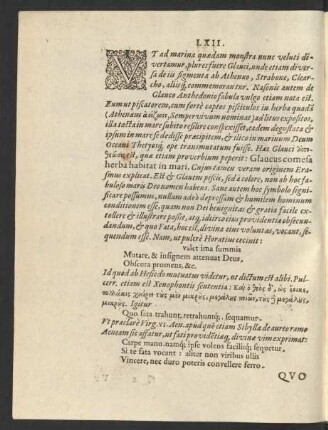 LXII.
VT ad marina quædam monstra nunc veluti di-
vertamur, plures fuere Glauci, unde etiam diver-
sa de iis figmenta ab Athenæo, Strabone, Clear-
cho, aliisq; commemorantur. Nasonis autem de
Glauco Anthedonio fabula vulgo etiam nota est.
Eum ut piscatorem, cum fortè captos pisciculos in herba quadã
(Athenæus Sempervivum nominat) ad litus expositos,
illa tacta in mare subito resilire conspexisset, eadem degustata &
ipsum in mare se dedisse præcipitem, & in numen marinum Deum
Oceani Thetyosq́; ope transmutatum fuisse. Hæc Glauci
est, quæ etiam proverbium peperit: Glaucus comesa
herba habitat in mari. Cujus tamen veram originem Eras-
mus explicat. Est & Glaucus piscis, sed à colore, non ab hoc fa-
buloso maris Deo nomen habens. Sanè autem hoc symbolo signi-
ficare possumus, nullam adeò depressam & humilem hominum
conditionem esse, quam non Dei benignitas & gratia facilè extol-
lere & illustrare possit, atq́; idcirco ejus providentia obsecun-
dandum, & quo Fata, hoc est, divina ejus voluntas, vocant, se-
quendum esse. Nam, ut pulcrè Horatius cecinit:
valet ima summis
Mutare, & insignem attenuat Deus,
Obscura promens, &c.
Id quod ab Hesiodo mutuatus videtur, ut dictum est alibi. Pul-
cer. etiam est Xenophontis sententia: Καὶ ὁ θεὸς δ',
χαίρει τοὺς μὲν μικροὺς μεγάλους ποιῶν, τοὺς δὲ μεγάλους
μικρούς. Igitur
Quo fata trahunt, retrahuntq́;, sequamur.
Et præclarè Virg. VI. Aen. apud quẽ etiam Sibylla de aureo ramo
Aeneam sic affatur, ut fati providẽtiaq́; divinæ vim exprimat:
Carpe manu. namq́; ipse volens facilisq́; sequetur,
Si te fata vocant: aliter non viribus ullis
Vincere, nec duro poteris convellere ferro.
QVO